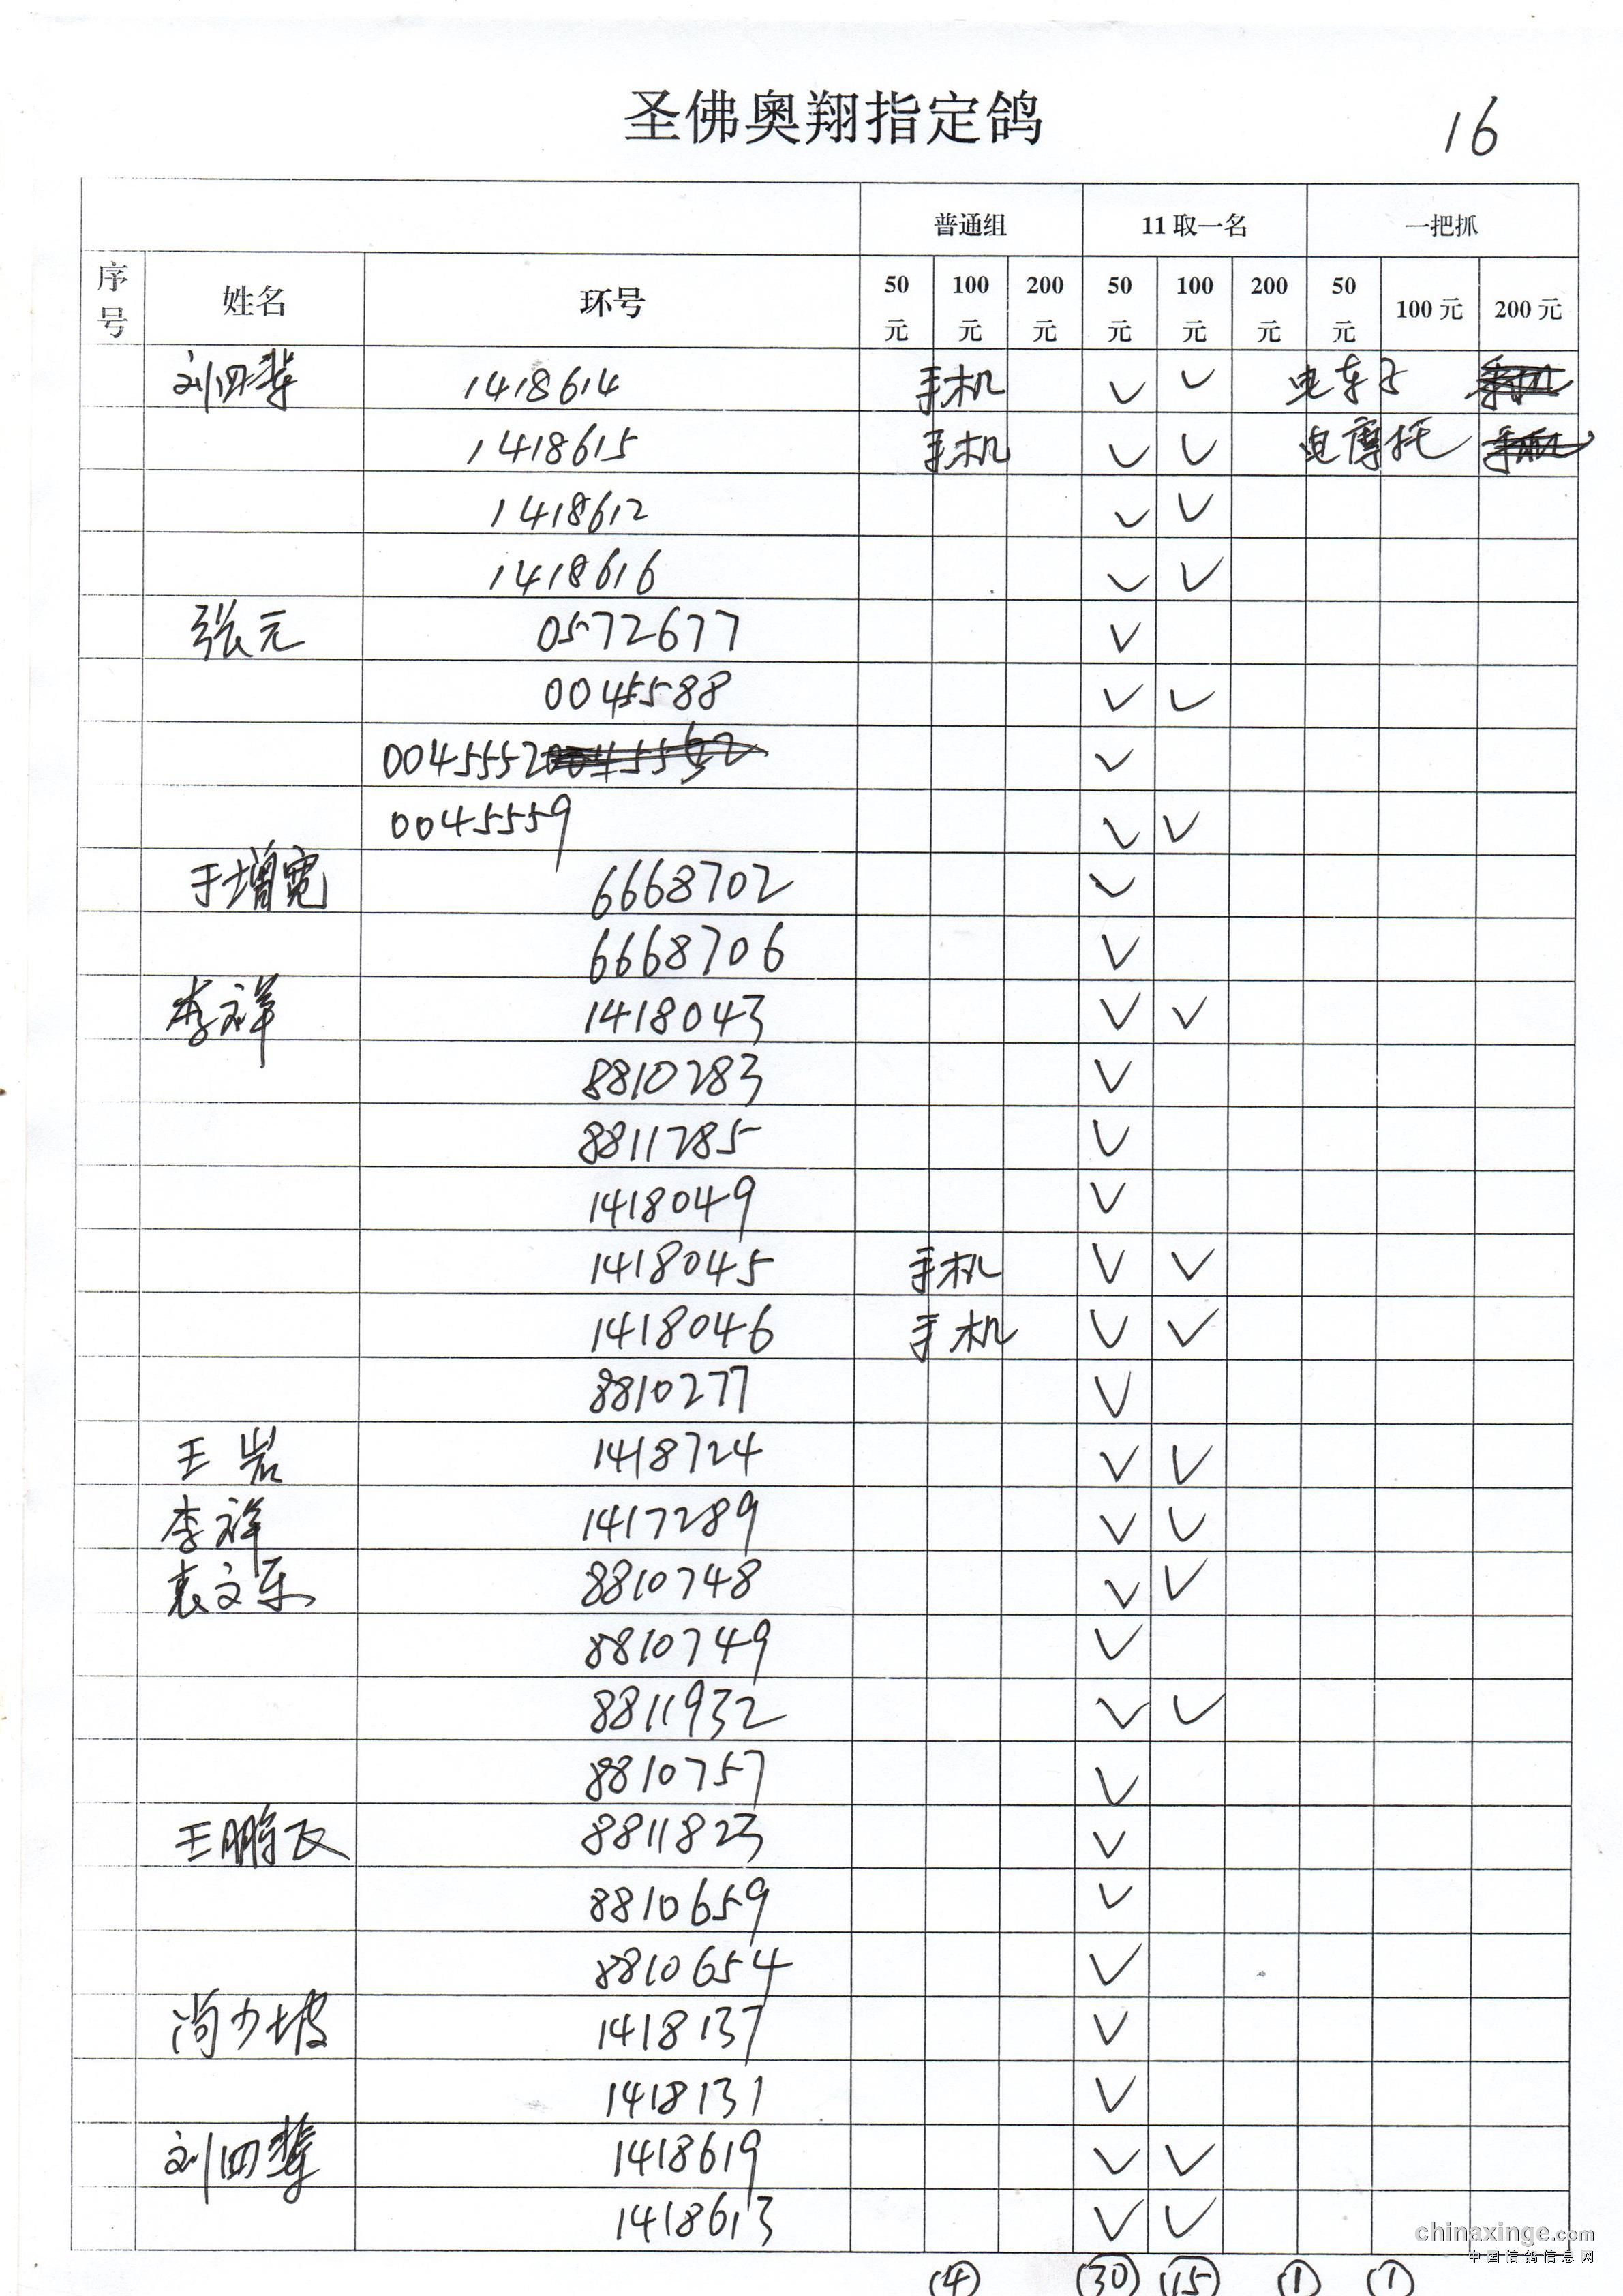 圣佛奥翔指定鸽
16
普通组 11取一名 一把抓
序号 姓名 环号 50元 100元 200元 50元 100元 200元 50元 100元 200元
刘四辈 1418614 手机 ✓ ✓ 电车子
1418615 手机 ✓ ✓ 电摩托
1418612 ✓ ✓
1418616 ✓ ✓
张元 0572677 ✓
0045588 ✓ ✓
0045552 ✓
0045559 ✓ ✓
于增宽 6668702 ✓
6668706 ✓
李祥 1418043 ✓ ✓
8810283 ✓
8811285 ✓
1418049 ✓
1418045 手机 ✓ ✓
1418046 手机 ✓ ✓
8810277 ✓
王岩 1418724 ✓ ✓
李祥 1417289 ✓ ✓
袁文乐 8810748 ✓ ✓
8810749 ✓
8811932 ✓ ✓
8810757 ✓
王鹏飞 8811823 ✓
8810659 ✓
8810654 ✓
尚少坡 1418137 ✓
1418131 ✓
刘四辈 1418619 ✓ ✓
1418613 ✓ ✓
④ ㉚ ⑮ ① ①
chinaxinge.com
中国信鸽信息网